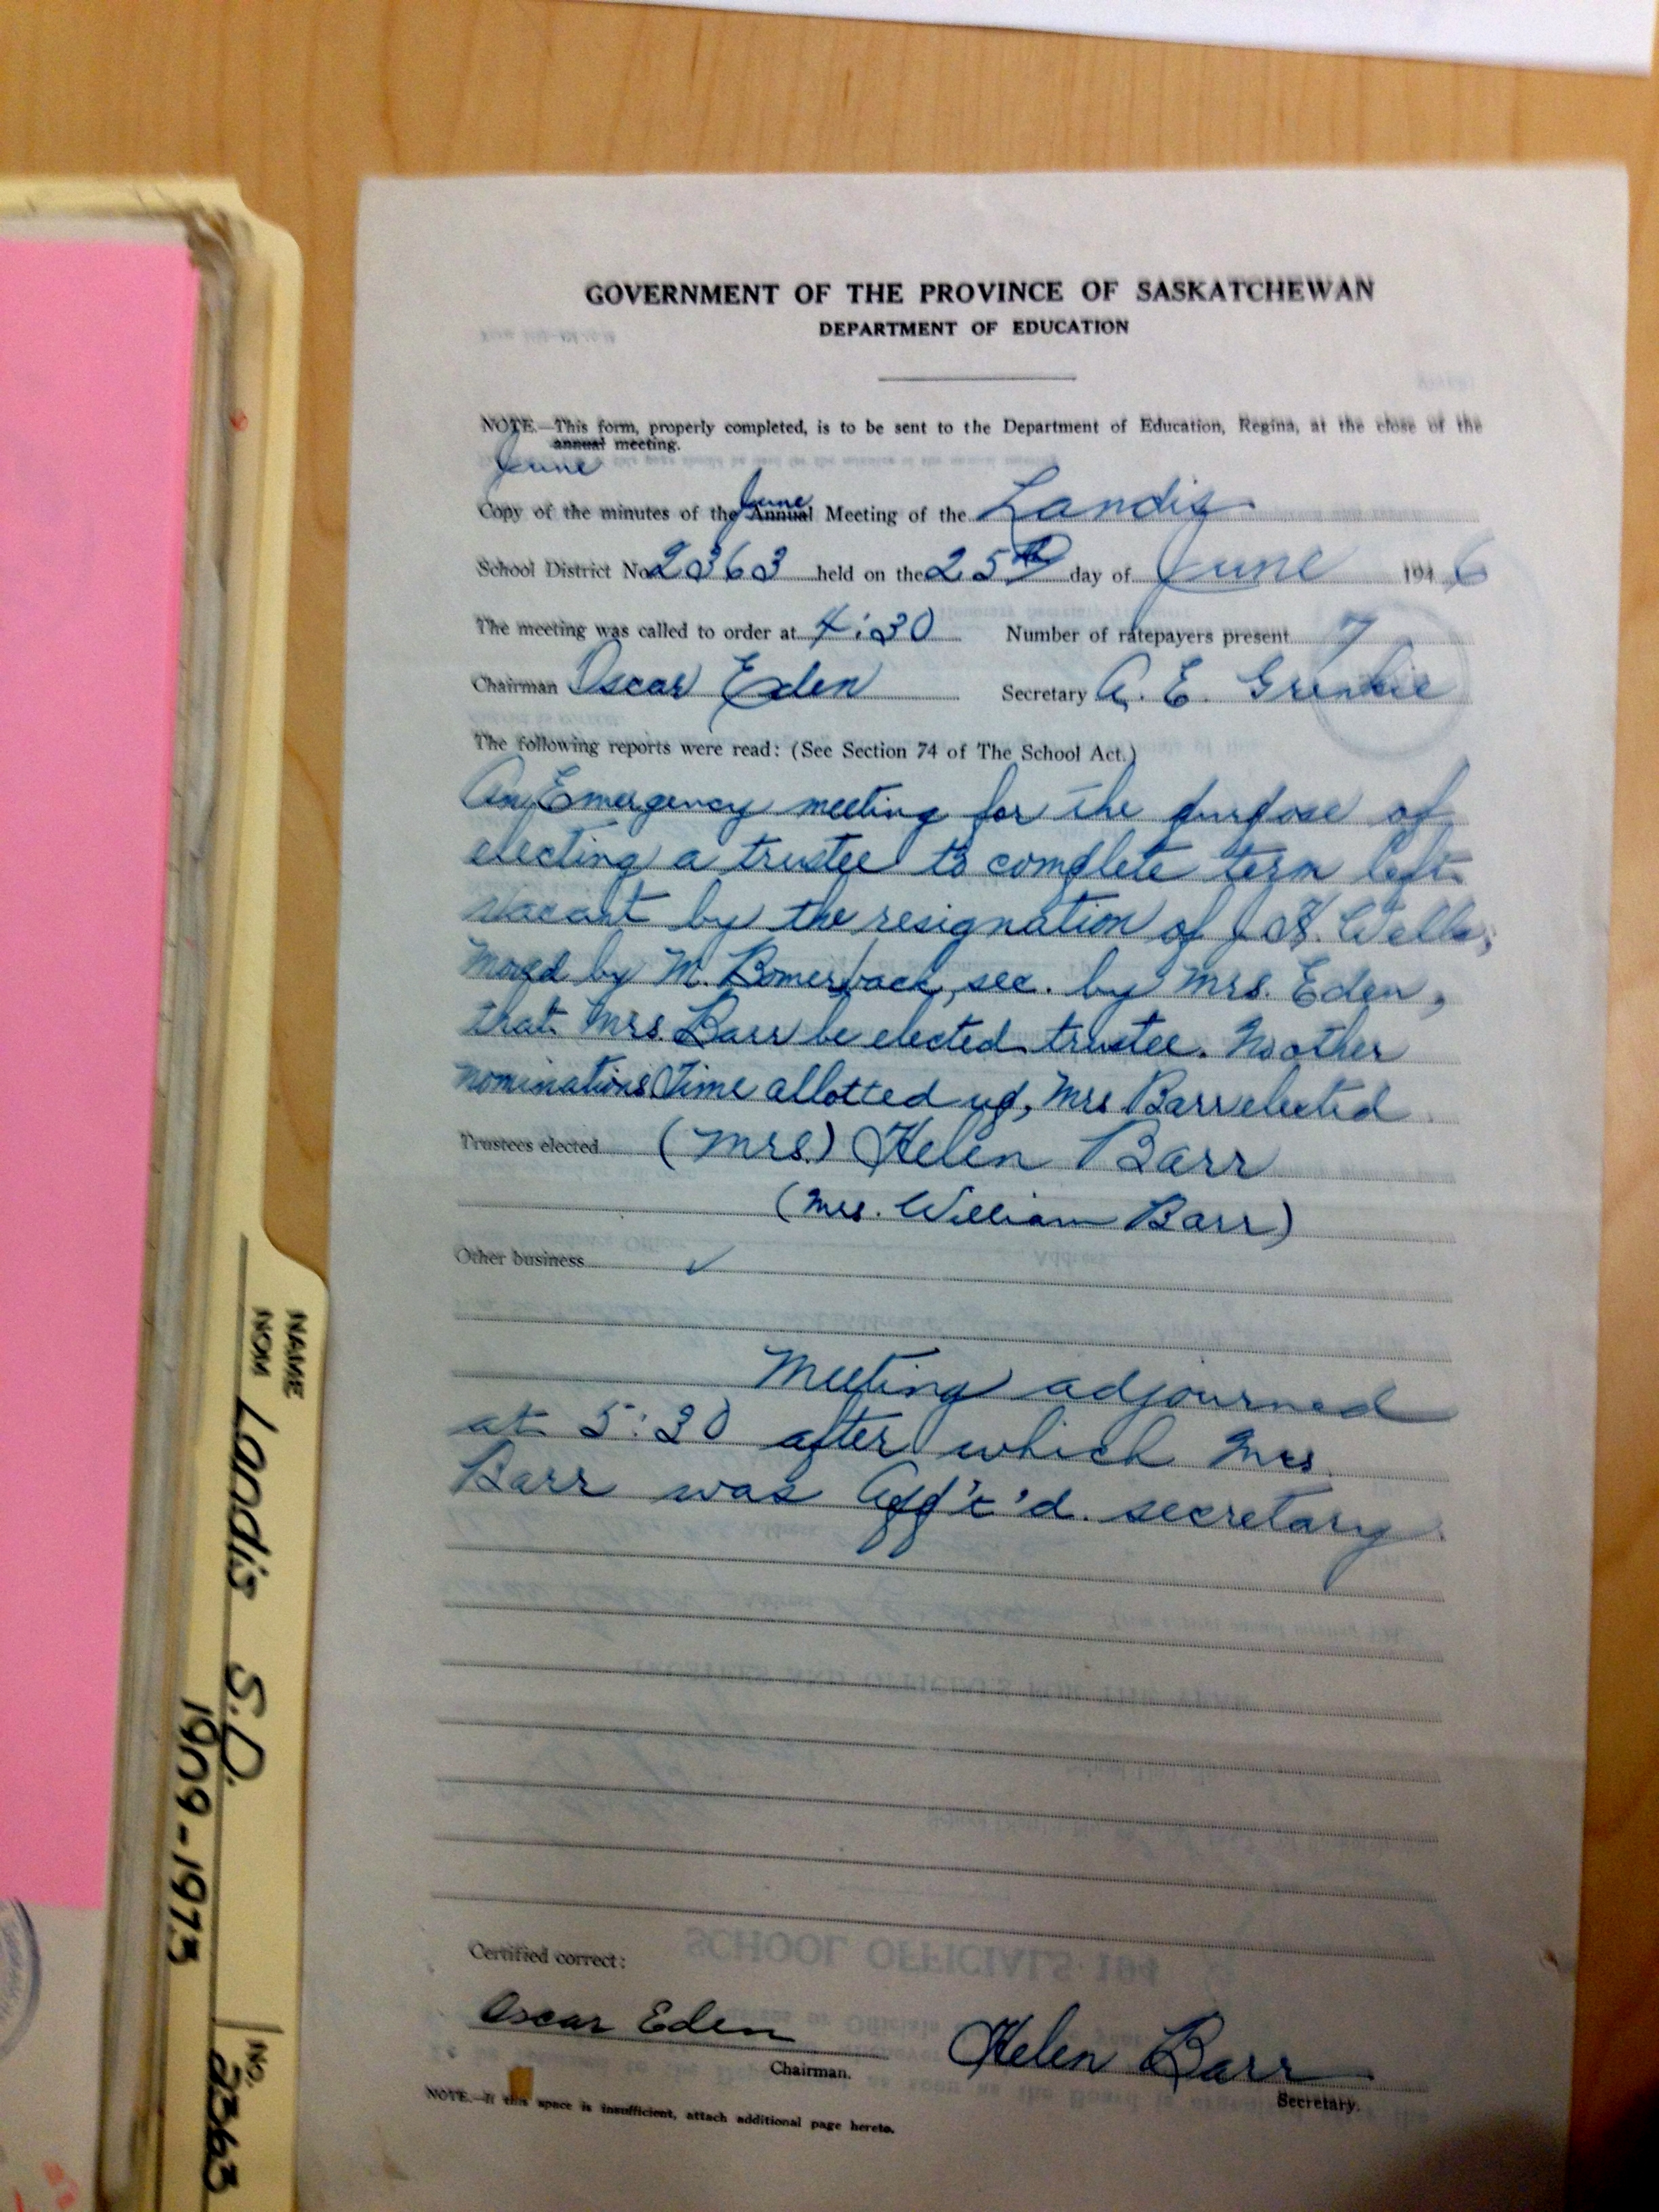 GOVERNMENT OF THE PROVINCE OF SASKATCHEWAN
DEPARTMENT OF EDUCATION
NOTE.—This form, properly completed, is to be sent to the Department of Education, Regina, at the close of the
annual meeting.
June
June
Copy of the minutes of the Annual Meeting of the Landis
School District No. 2363 held on the 25th day of June 1946
The meeting was called to order at 4:30 Number of ratepayers present 7
Chairman Oscar Eden Secretary A. E.
The following reports were read: (See Section 74 of The School Act.)
An Emergency meeting for the purpose of
electing a trustee to complete term left
vacant by the resignation of J. H. Wells,
Moved by M. Bomerback, sec. by Mrs. Eden,
that Mrs. Barr be elected trustee. No other
nominations. Time allotted up, Mrs Barr elected
Trustees elected (Mrs.) Helen Barr
(Mrs. William Barr)
Other business
Meeting adjourned
at 5:30 after which Mrs.
Barr was App't'd. secretary.
SCHOOL OFFICIALS 194
Certified correct:
Oscar Eden Helen Barr
Chairman.
Secretary.
NOTE.—If this space is insufficient, attach additional page hereto.
NAME
NOM Landis S.D. NO. 2363
1909-1973